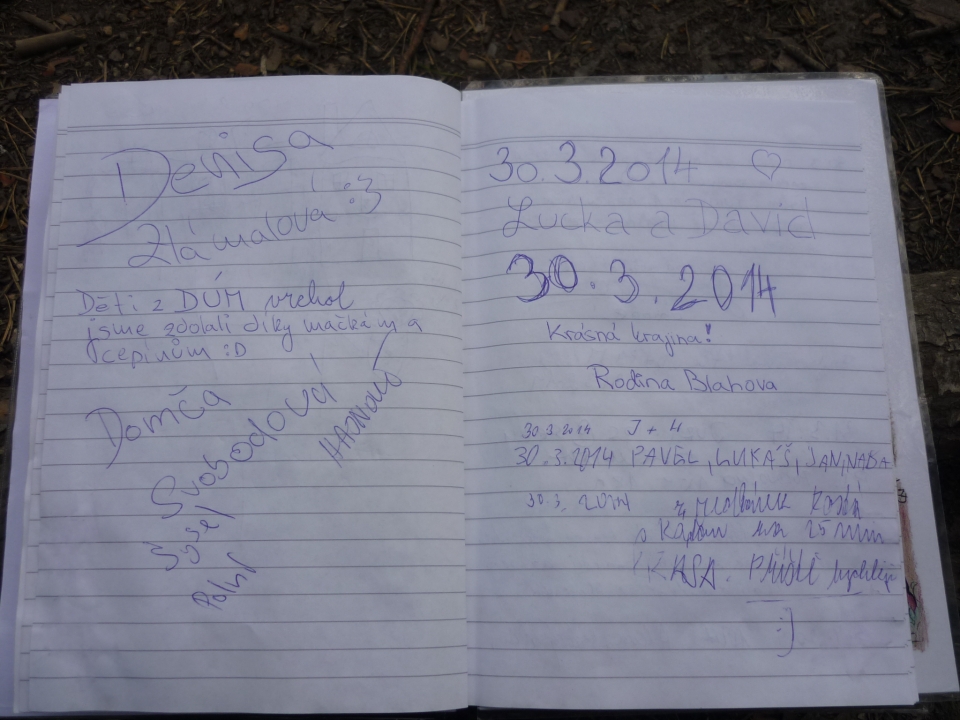 Denisa
Zlámalová :3
Děti z DÚM vrchol
jsme zdolali díky mačkám a
cepínům :D
Domča
Svobodová
Sysel
Polní
30.3.2014 ♡
Lucka a David
30.3.2014
Krásná krajina!
Rodina Blahova
30.3.2014 J + H
30.3.2014 PAVEL, LUKÁŠ, JAN, NAĎA
30.3.2014
25 min
KRASA. PŘÍŠTĚ rychleji
:)